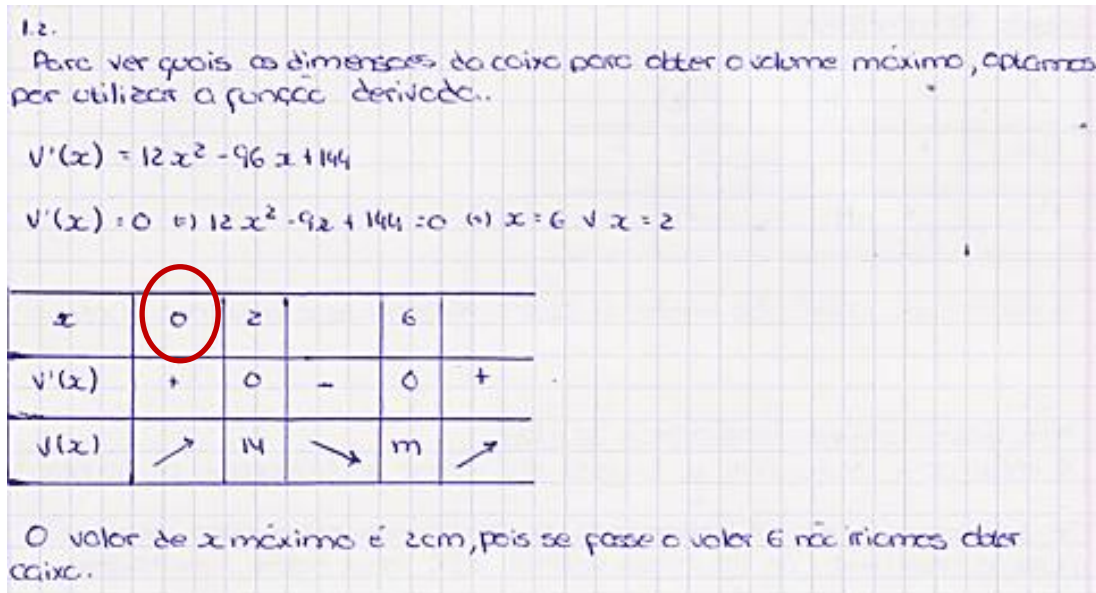 1.2.
Para ver quais as dimensões da caixa para obter o volume máximo, optamos
por utilizar a função derivada..
V'(x) = 12x² - 96x + 144
V'(x) = 0 (=) 12x² - 92 + 144 = 0 (=) x = 6 V x = 2
x 0 2 6
V'(x) + 0 - 0 + 
V(x) ↗ M ↘ m ↗
O valor de x máximo é 2cm, pois se fosse o valor 6 não iriamos obter
caixa.